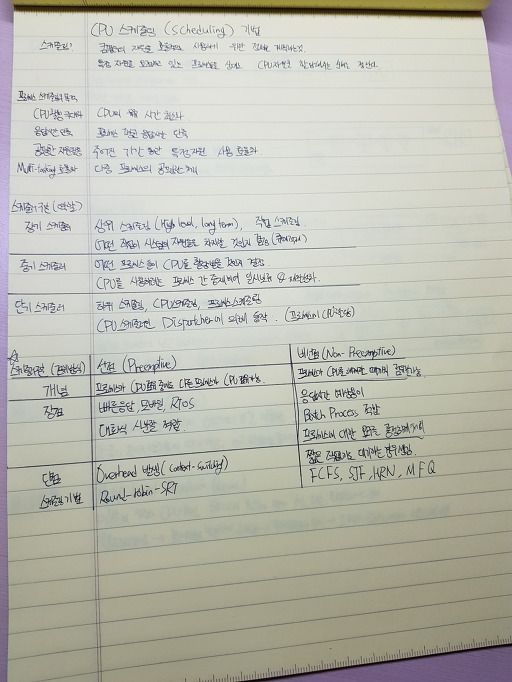 CPU 스케줄링 (scheduling) 기법
스케줄링? 컴퓨터의 자원을 효율적으로 사용하기 위한 정책을 계획하는것.
특정 자원을 요청하고 있는 프로세스들 상대로 CPU자원을 할당해주는 순서를 정한다.
프로세스 스케줄러의 목적
CPU활용 극대화 CPU의 유휴 시간 최소화
응답시간 단축 프로세스 평균 응답시간 단축
공평한 자원활용 주어진 기간 동안 특정자원 사용
Multi-tasking 효율화 다중 프로세스의 공평한 처리
스케줄러 구분 (역할)
장기 스케줄러 상위 스케줄링 (High level, long term), 작업 스케줄링
어떤 작업이 시스템의 자원들을 차지할 것인지 결정
중기 스케줄러 어떤 프로세스들이 CPU를 할당받을 것인지 결정
CPU를 사용하려는 프로세스 간 중재하여 일시보류 & 재활성화.
단기 스케줄러 하위 스케줄링, CPU스케줄링, 프로세스 스케줄링
CPU 스케줄러인 Dispatcher에 의해 동작. (프로세스에 CPU할당)
스케줄러구분 선점 (Preemptive) 비선점 (Non-Preemptive)
개념 프로세스가 CPU 점유 중에도 다른 프로세스가 CPU 점유가능.
장점 빠른응답, 모바일, RTOS 응답시간 예상용이
대화식 시분할 적합. Batch Process 적합
프로세스에 대한 요구를 공정하게 처리
단점 Overhead 발생 (context-switching) 짧은 작업이 대기하는 경우 발생.
스케줄링 기법 Round-robin-SRT FCFS, SJF, HRN, MFQ